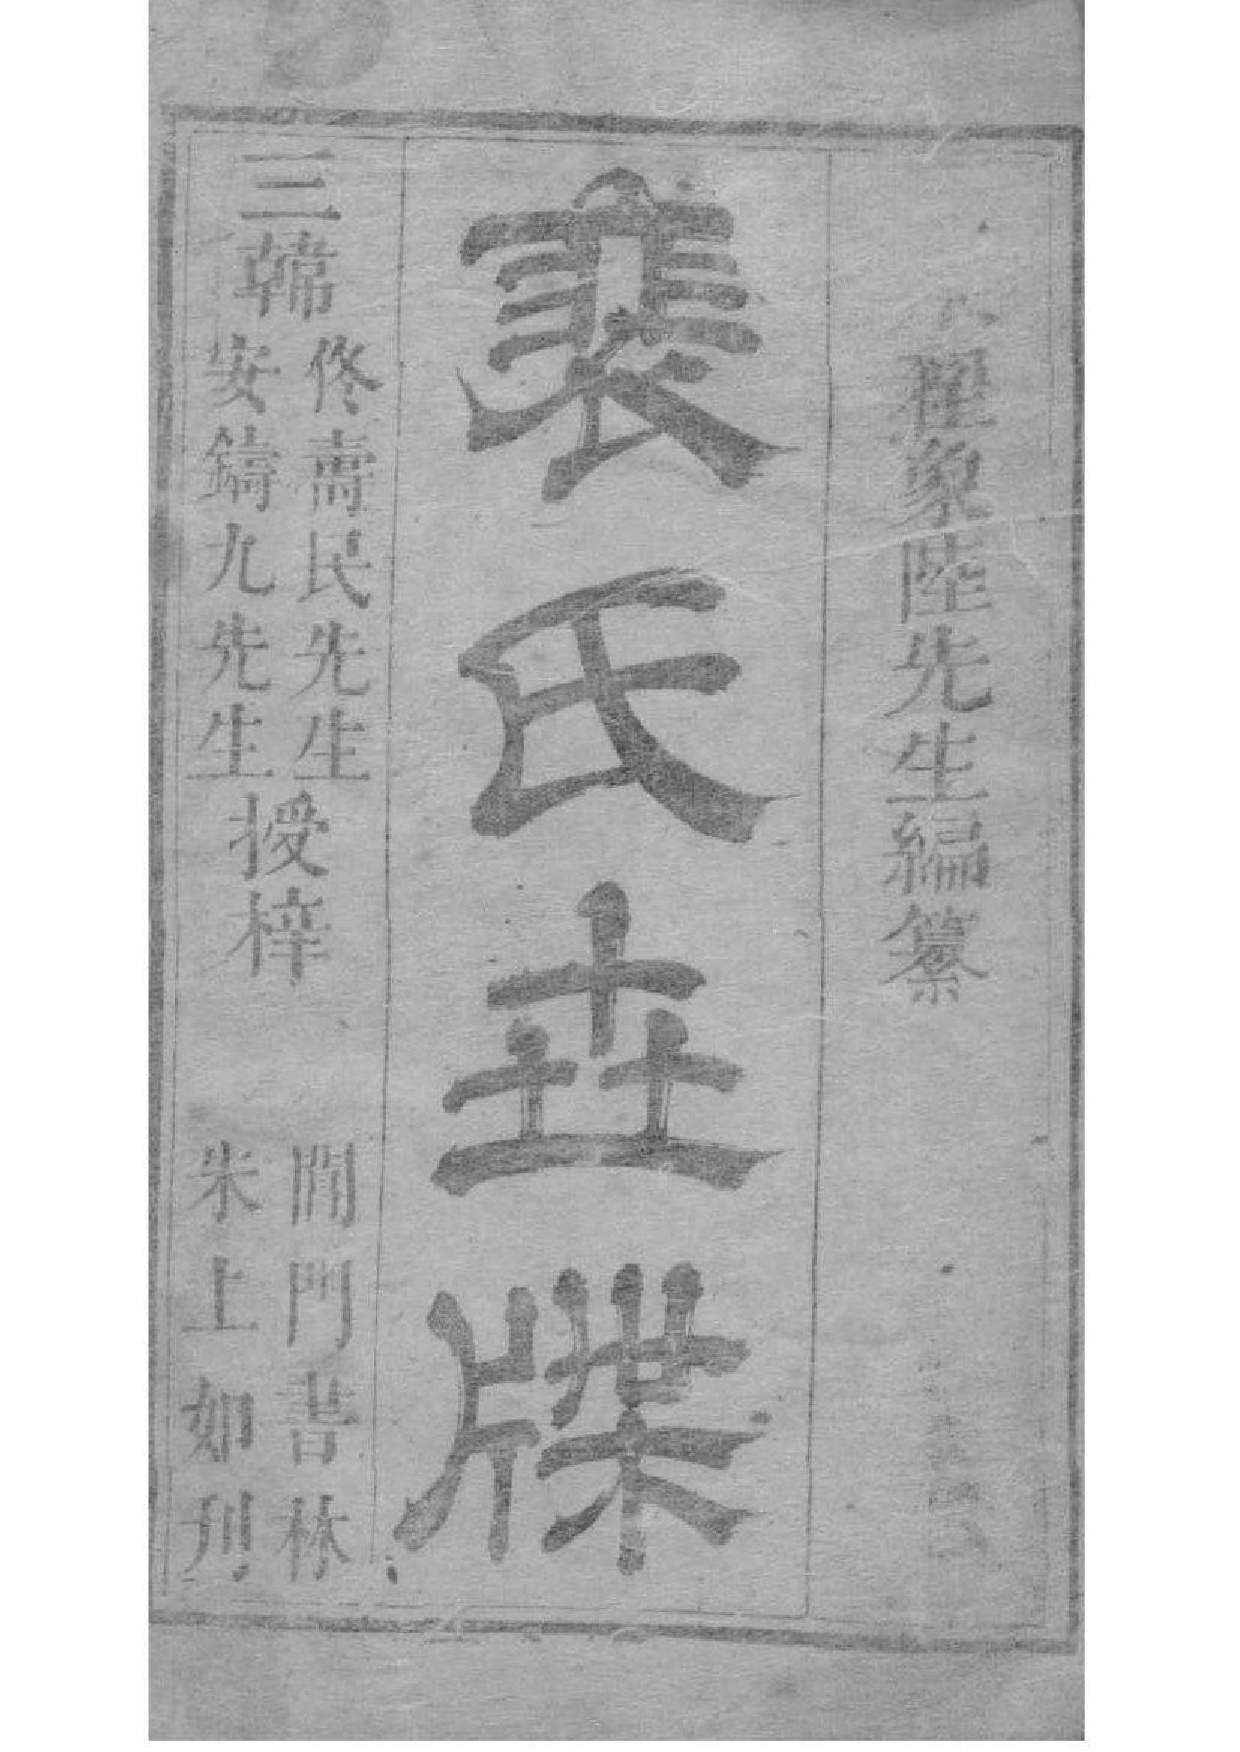 翟象陸先生編纂
裵氏世牒
三韓
佟壽民先生
安鑄九先生
授梓
閶門書林
朱上如刊